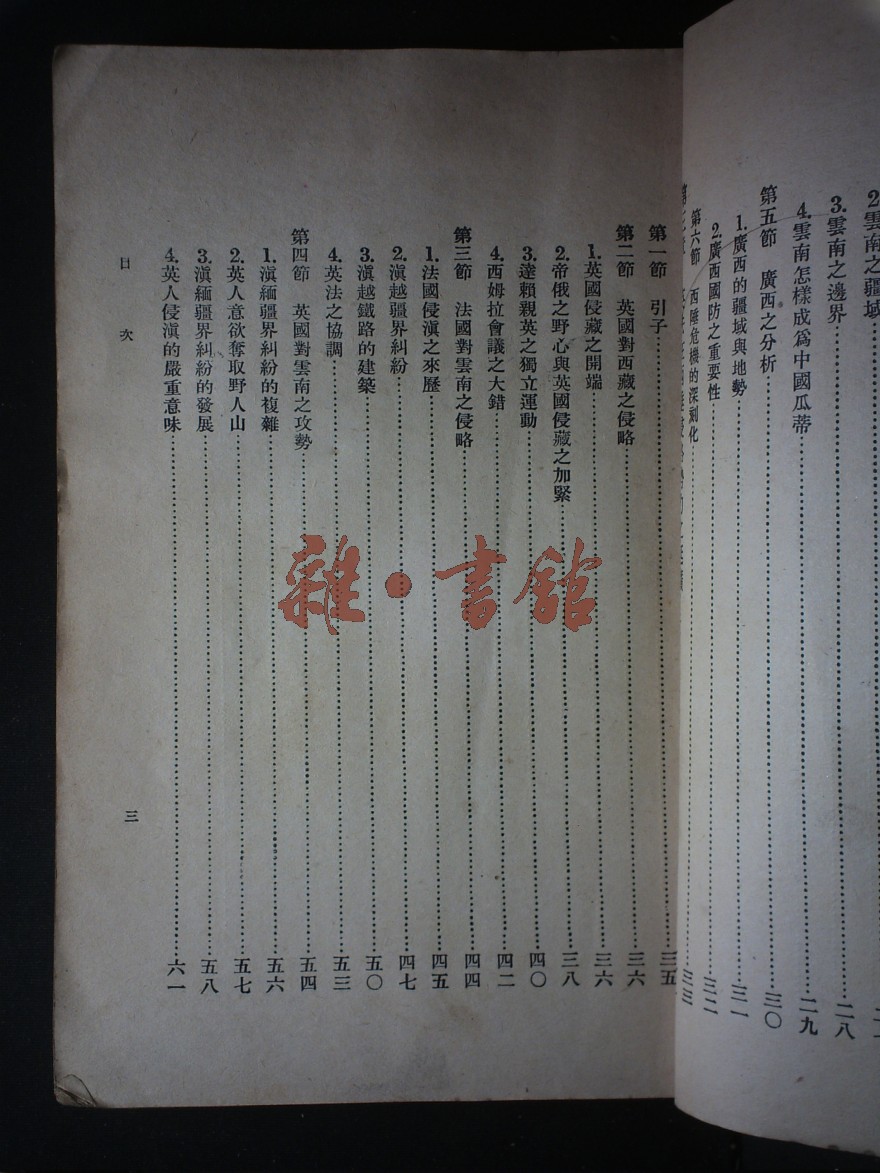 2.雲南之疆域
3.雲南之邊界……二八
4.雲南怎樣成爲中國瓜蒂……二九
第五節 廣西之分析……三〇
1.廣西的疆域與地勢……三一
2.廣西國防之重要性……三二
第六節 西陲危機的深刻化……三三
第一節 引子……三五
第二節 英國對西藏之侵略……三六
1.英國侵藏之開端……三六
2.帝俄之野心與英國侵藏之加緊……三八
3.達賴親英之獨立運動……四〇
4.西姆拉會議之大錯……四二
第三節 法國對雲南之侵略……四四
1.法國侵滇之來歷……四五
2.滇越疆界糾紛……四七
3.滇越鐵路的建築……五〇
4.英法之協調……五三
第四節 英國對雲南之攻勢……五四
1.滇緬疆界糾紛的複雜……五六
2.英人意欲奪取野人山……五七
3.滇緬疆界糾紛的發展……五八
4.英人侵滇的嚴重意味……六一
目次
三
雜·書館